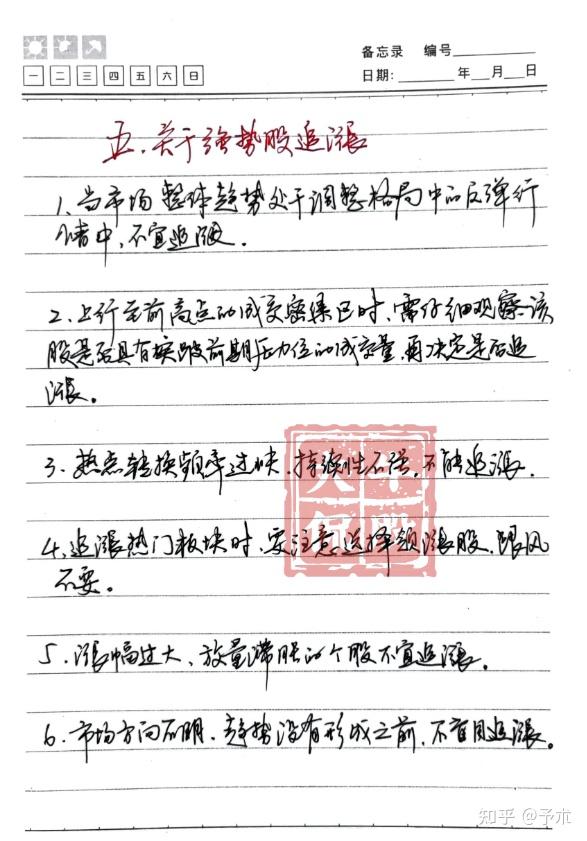 备忘录 编号
一 二 三 四 五 六 日
日期: 年 月 日
五、关于强势股追漲
1、当市场整体趋势处于调整格局中的反弹行
情中,不宜追漲。
2、上行至前高点的成交密集区时,需仔细观察该
股是否具有突破前期压力位的成交量,再决定是否追
漲。
3、热点转换频率过快,持续性不强,不能追漲。
4、追漲热门板块时,要注意选择领漲股,跟风
不要。
5、漲幅过大、放量滞胀的个股不宜追漲。
6、市场方向不明,趋势没有形成之前,不盲目追漲。
知乎 @予术